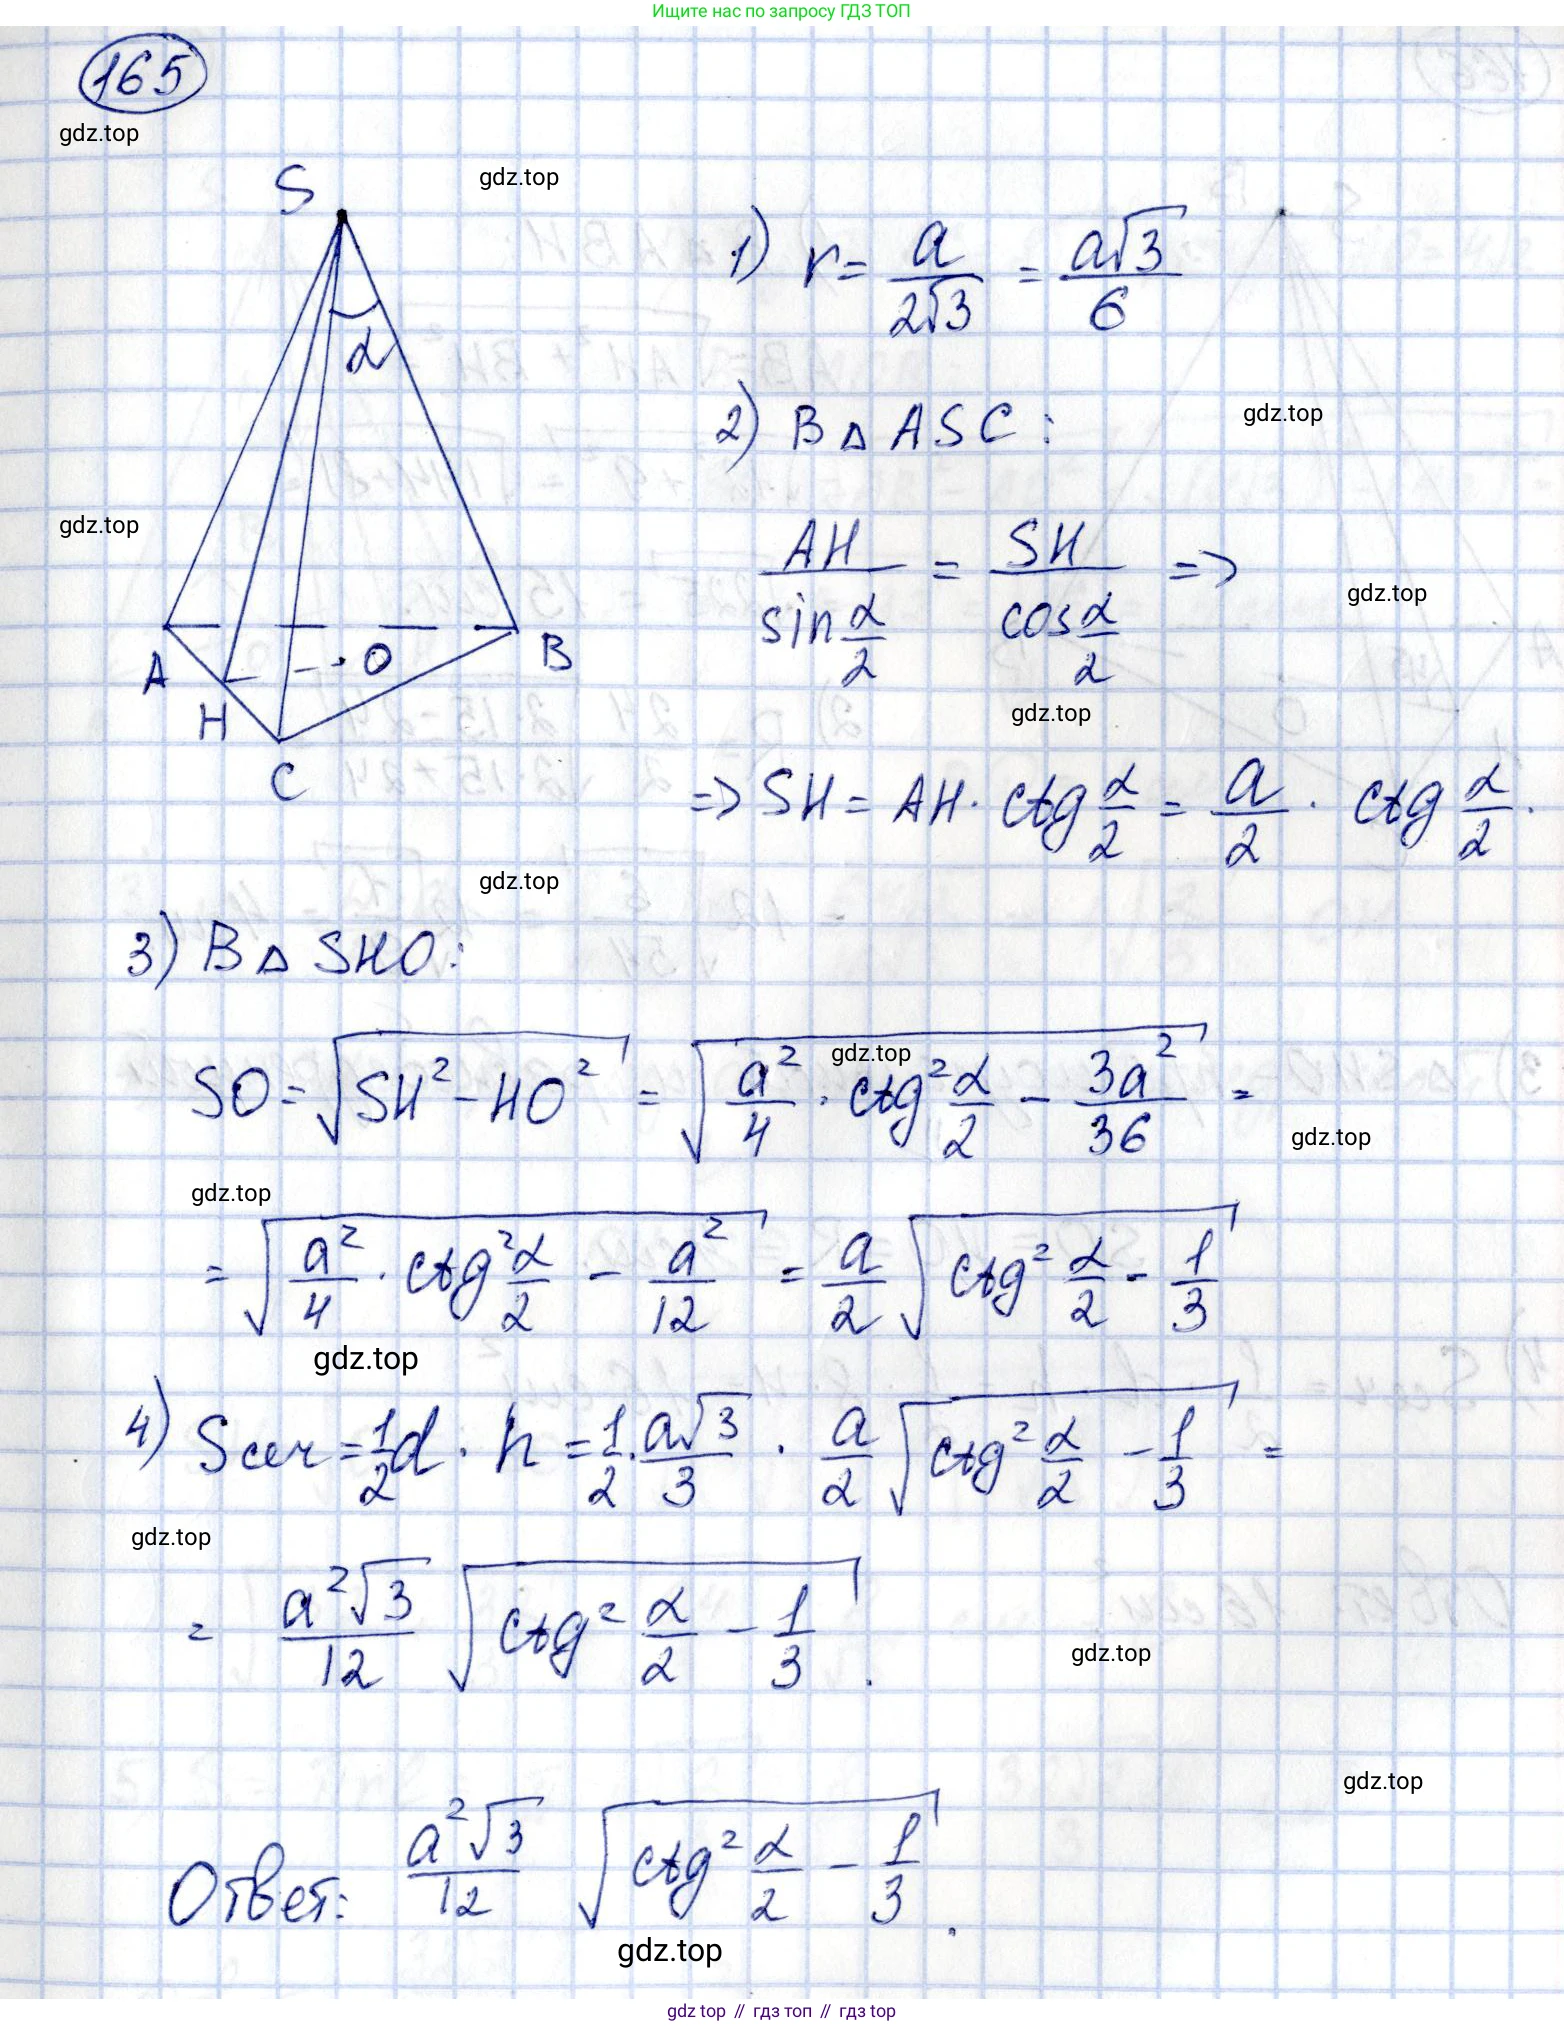 Ищите нас по запросу ГДЗ ТОП
165
gdz.top
gdz.top
S
α
A
H
O
B
C
1) r = a/(2√3) = a√3/6
gdz.top
2) В △ ASC:
gdz.top
AH/sin α/2 = SH/cos α/2 =>
gdz.top
gdz.top
=> SH = AH · ctg α/2 = a/2 · ctg α/2.
gdz.top
3) В △ SHO:
SO = √(SH² - HO²) = √(a²/4 · ctg² α/2 - 3a²/36) =
gdz.top
gdz.top
gdz.top
= √(a²/4 · ctg² α/2 - a²/12) = a/2 √(ctg² α/2 - 1/3)
gdz.top
4) Sсеч = 1/2 d · h = 1/2 · a√3/3 · a/2 √(ctg² α/2 - 1/3) =
gdz.top
= a²√3/12 √(ctg² α/2 - 1/3).
gdz.top
gdz.top
Ответ: a²√3/12 √(ctg² α/2 - 1/3).
gdz.top
gdz top // гдз топ // гдз top